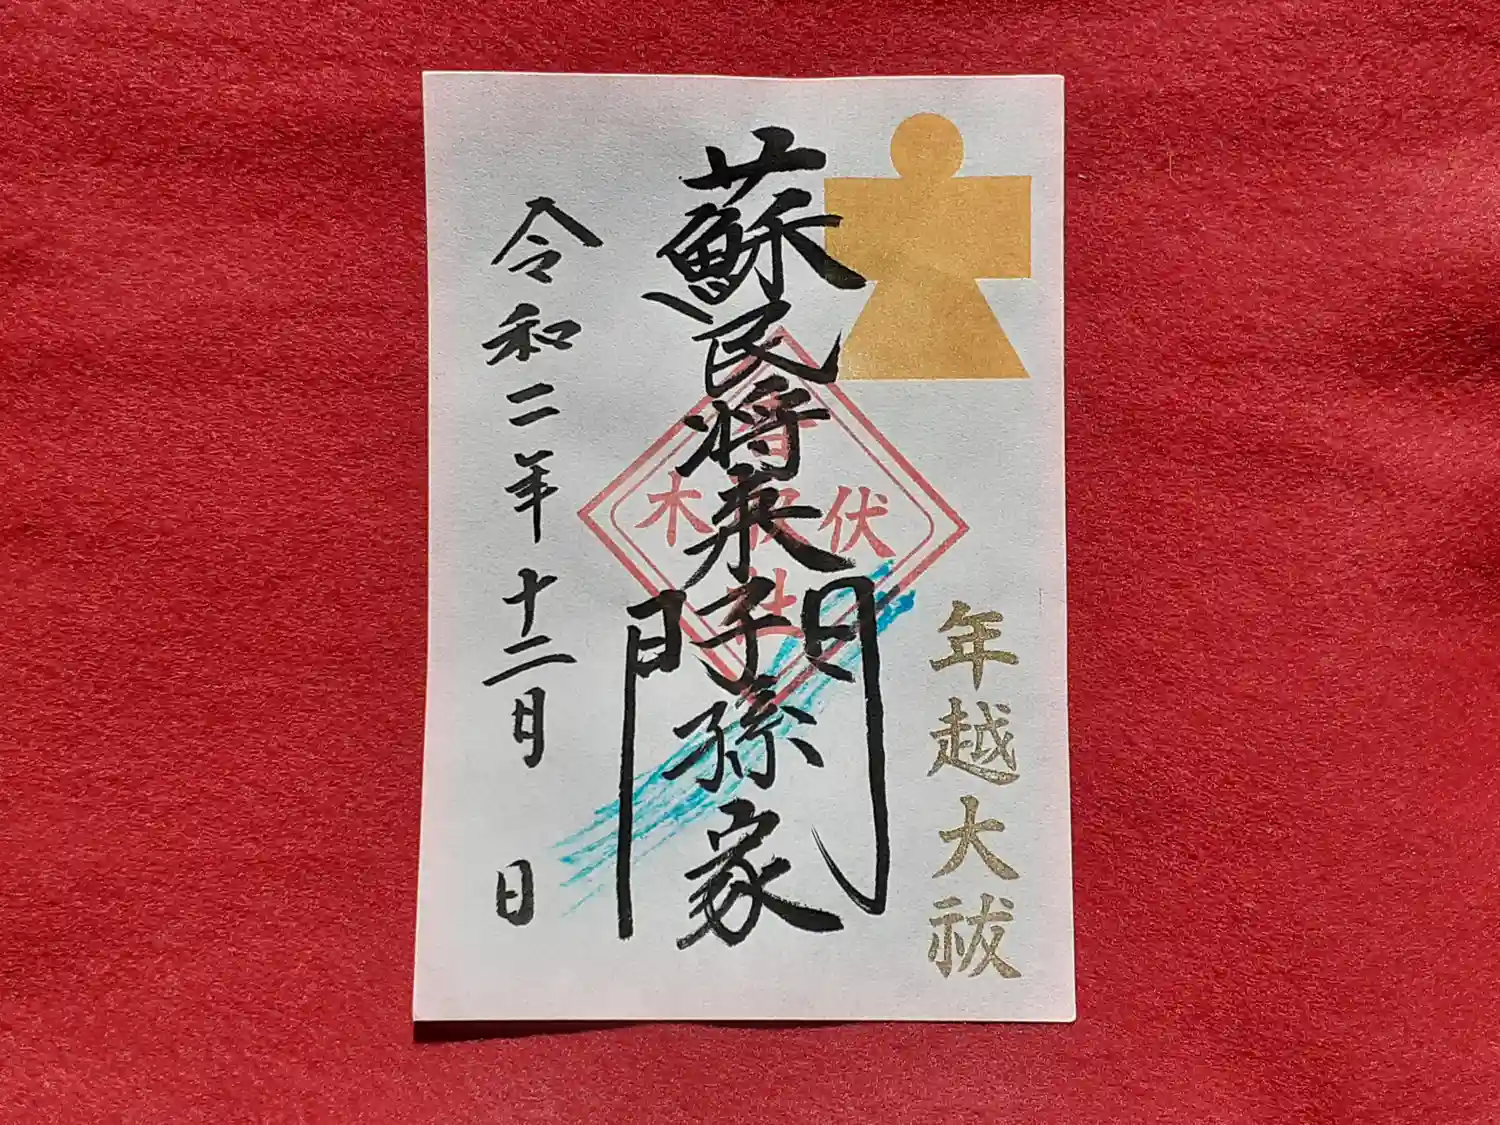 年越大祓
蘇民将来子孫家門
伏木
香取社
令和二年十二月 日